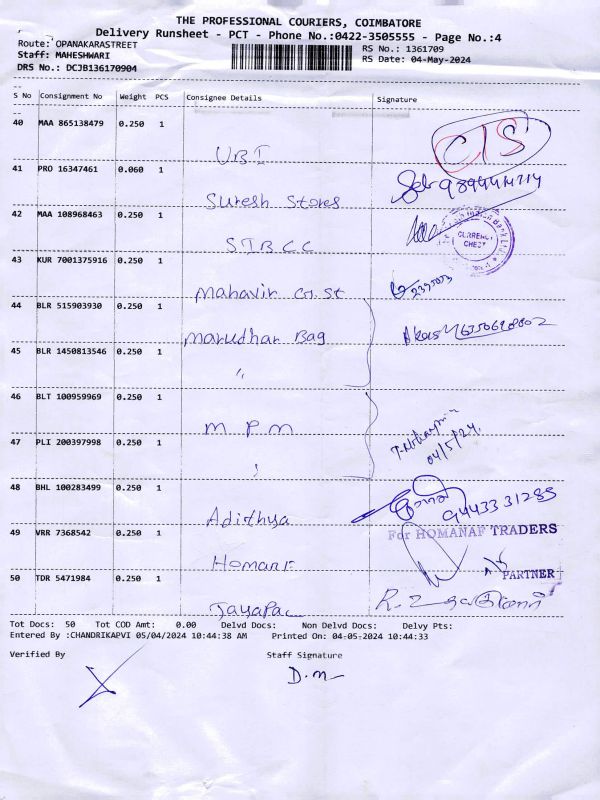 THE PROFESSIONAL COURIERS, COIMBATORE
Delivery Runsheet - PCT - Phone No.:0422-3505555 - Page No.:4
Route: OPANAKARASTREET
Staff: MAHESHWARI
DRS No.: DCJB136170904
RS No.: 1361709
RS Date: 04-May-2024
S No Consignment No Weight PCS Consignee Details Signature
40 MAA 865138479 0.250 1
UBI
CTS
41 PRO 16347461 0.060 1
Suresh Stores
42 MAA 108968463 0.250 1
STBCC
CURRENCY
CHEST
43 KUR 7001375916 0.250 1
Mahavir
44 BLR 515903930 0.250 1
Marudhar Bag
45 BLR 1450813546 0.250 1
"
46 BLT 100959969 0.250 1
M P M
04/5/24.
47 PLI 200397998 0.250 1
"
48 BHL 100283499 0.250 1
Adithya
9443331285
49 VRR 7368542 0.250 1
For HOMANAF TRADERS
PARTNER
50 TDR 5471984 0.250 1
Tot Docs: 50 Tot COD Amt: 0.00 Delvd Docs: Non Delvd Docs: Delvy Pts:
Entered By :CHANDRIKAPVI 05/04/2024 10:44:38 AM Printed On: 04-05-2024 10:44:33
Verified By Staff Signature
D.M